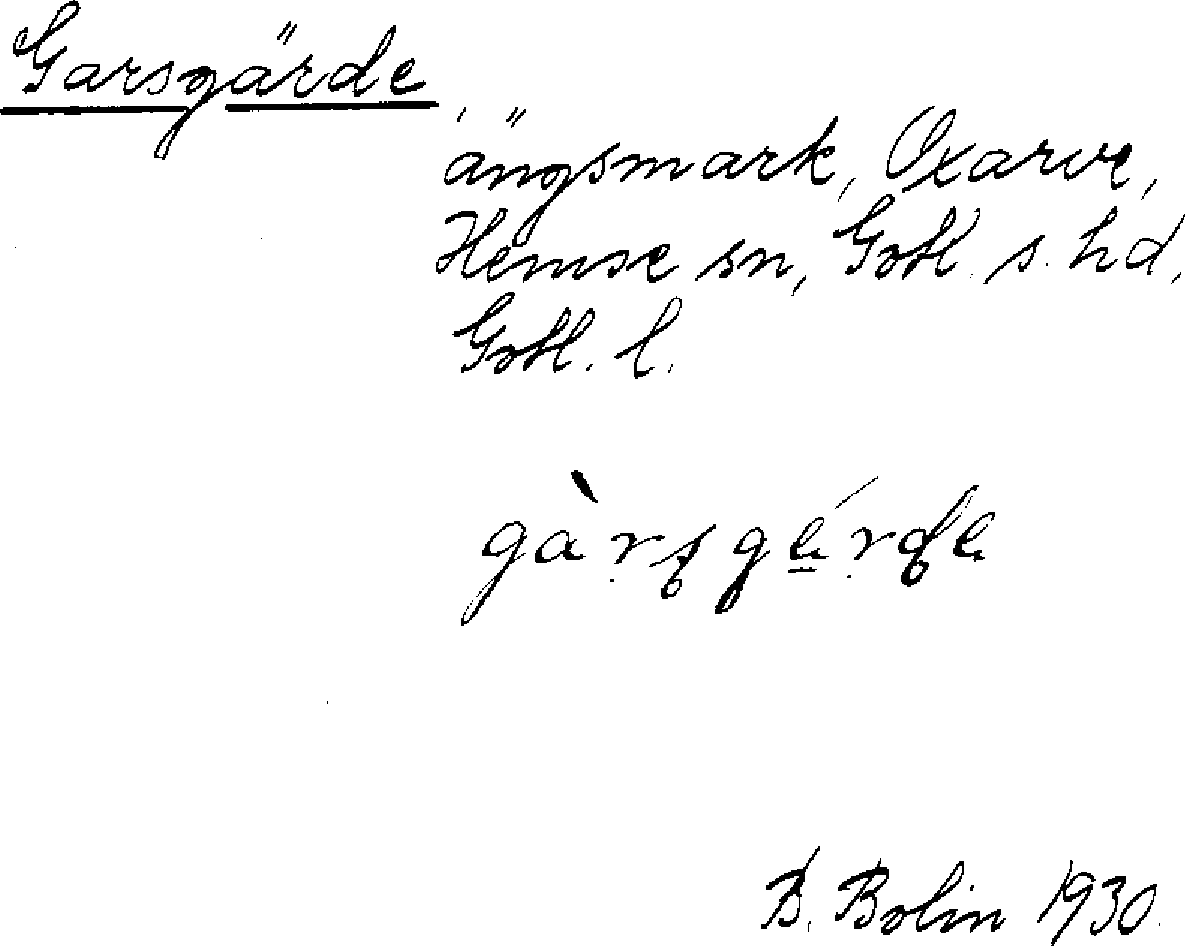 Garsgärde
ängsmark, Oxarve,
Hemse sn, Gotl. s. hd,
Gotl. l.
B. Bolin 1930.